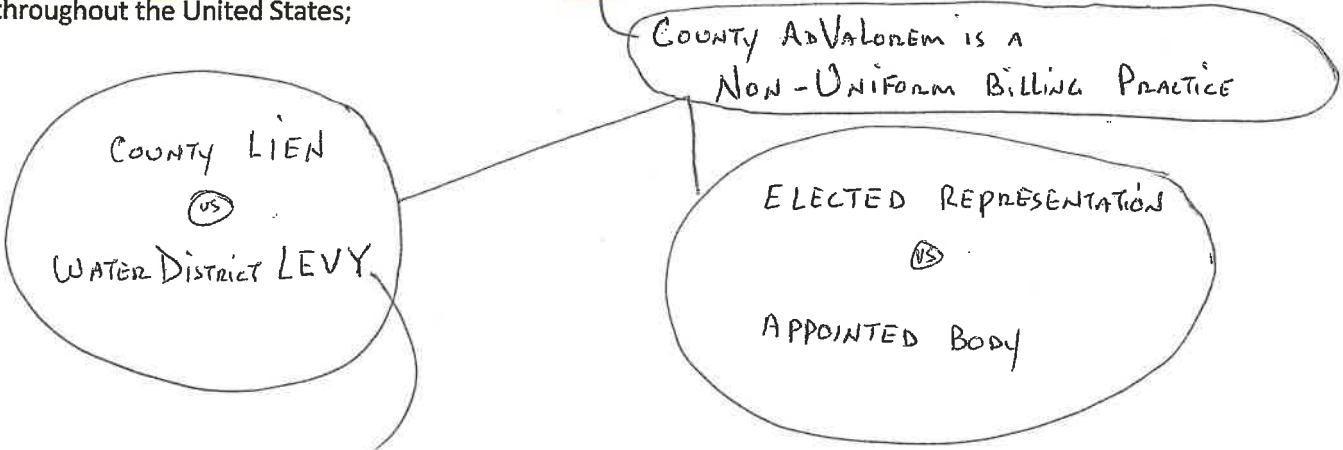 throughout the United States;
COUNTY ADVALOREM IS A
NON-UNIFORM BILLING PRACTICE
COUNTY LIEN
VS
WATER DISTRICT LEVY
ELECTED REPRESENTATION
VS
APPOINTED BODY